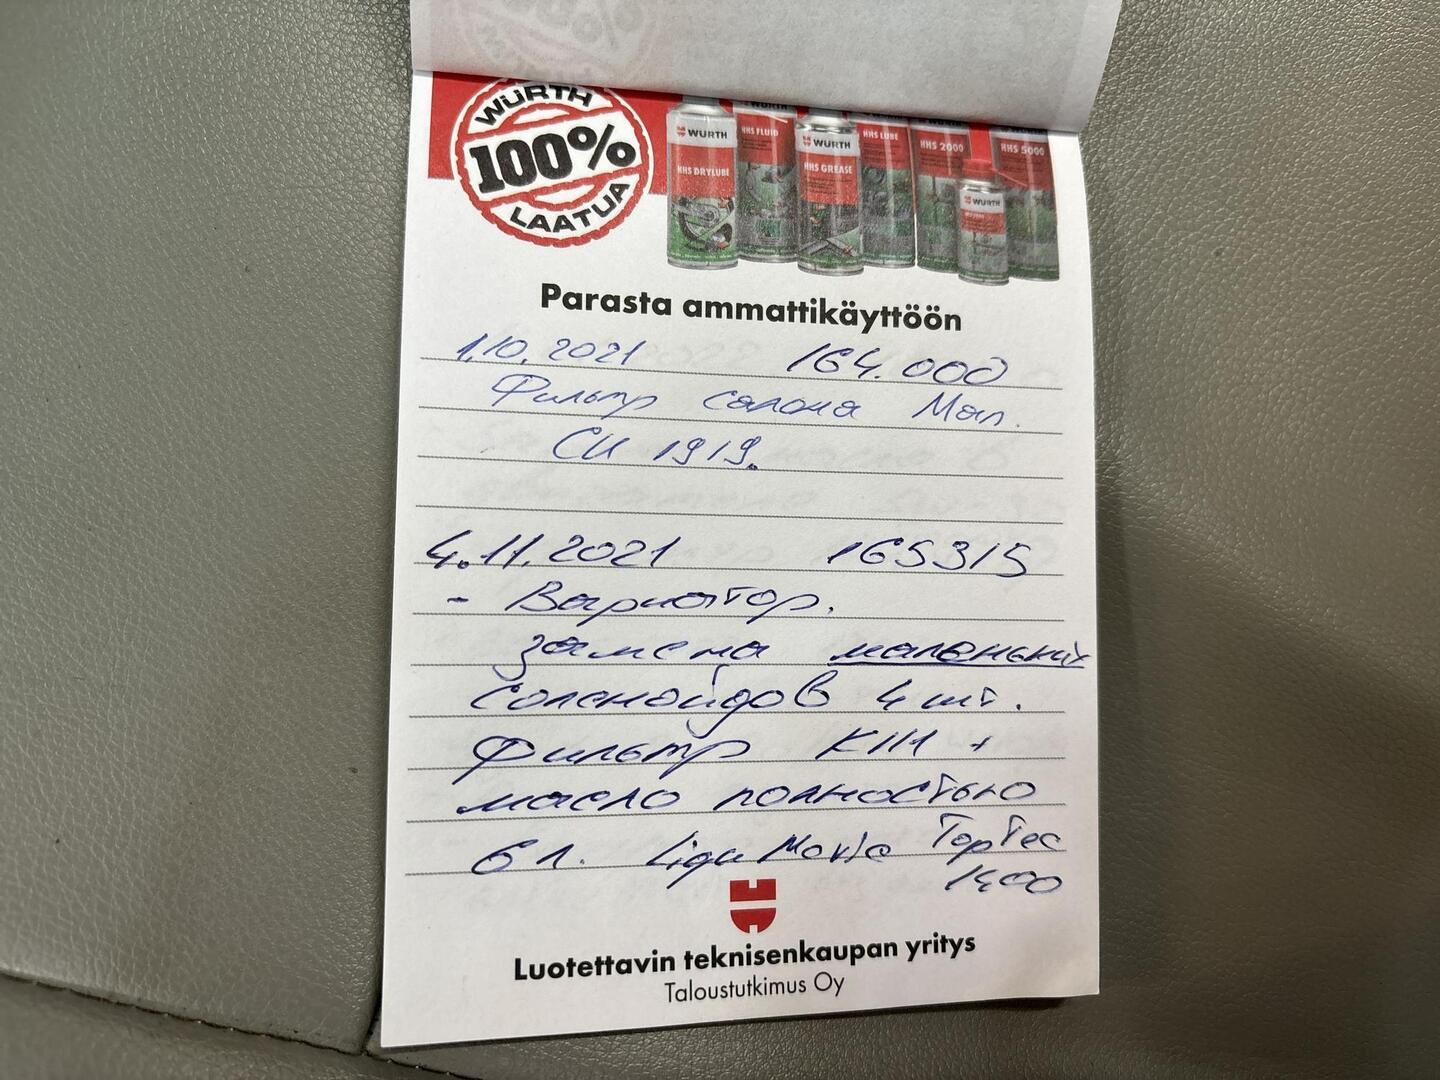 WÜRTH
100%
LAATUA
WÜRTH
HHS DRYLUBE
WÜRTH
HHS FLUID
WÜRTH
HHS GREASE
HHS LUBE
HHS 2000
WÜRTH
HHS 5000
Parasta ammattikäyttöön
1.10.2021 164.000
Фильтр салона Man.
CU 1919.
4.11.2021 165315
- Вариатор.
замена маленьких
соленойдов 4 шт.
Фильтр КПП +
масло полностью
6 л. Liqui Molle TopTec
1400
Luotettavin teknisenkaupan yritys
Taloustutkimus Oy